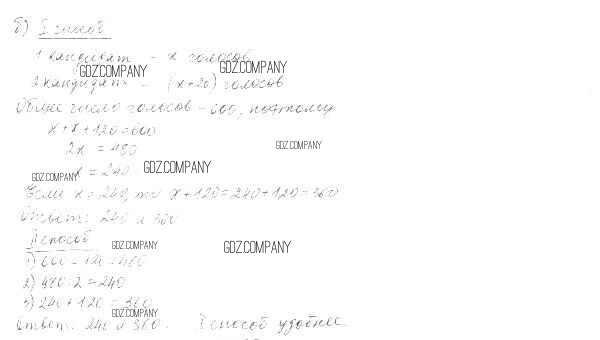 б) I способ
1 кандидат - x голосов
GDZ.COMPANY GDZ.COMPANY
2 кандидат - (x+20) голосов
Общее число голосов - 600, поэтому
x+x+120=600
2x = 480 GDZ.COMPANY
x = 240 GDZ.COMPANY
GDZ.COMPANY
Если x=240, то x+120=240+120=360
Ответ: 240 и 360
II способ GDZ.COMPANY GDZ.COMPANY
1) 600-120=480
2) 480:2=240
3) 240+120=360
GDZ.COMPANY
Ответ: 240 и 360. способ удобнее